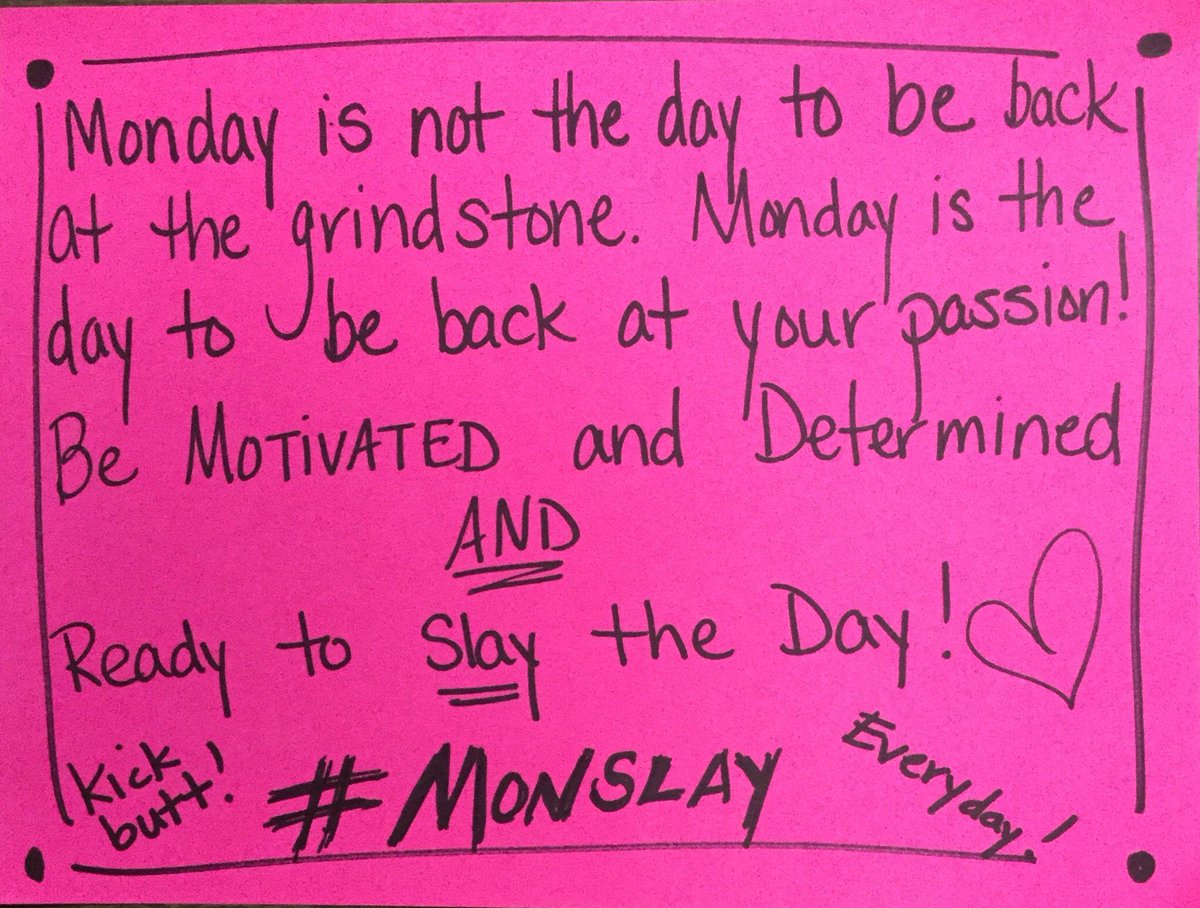 Monday is not the day to be back
at the grindstone. Monday is the
day to be back at your passion!
Be MOTiVATED and Determined
AND
Ready to Slay the Day!
Kick
butt!
#MONSLAY
Everyday!